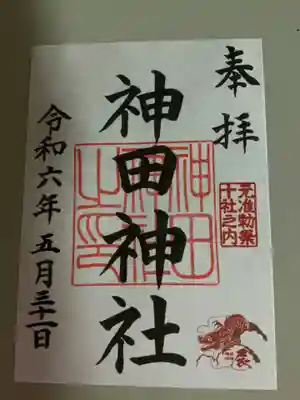 奉拝
元准勅祭
十社之内
神田神社
神田
神社
之印
令和六年五月三十一日